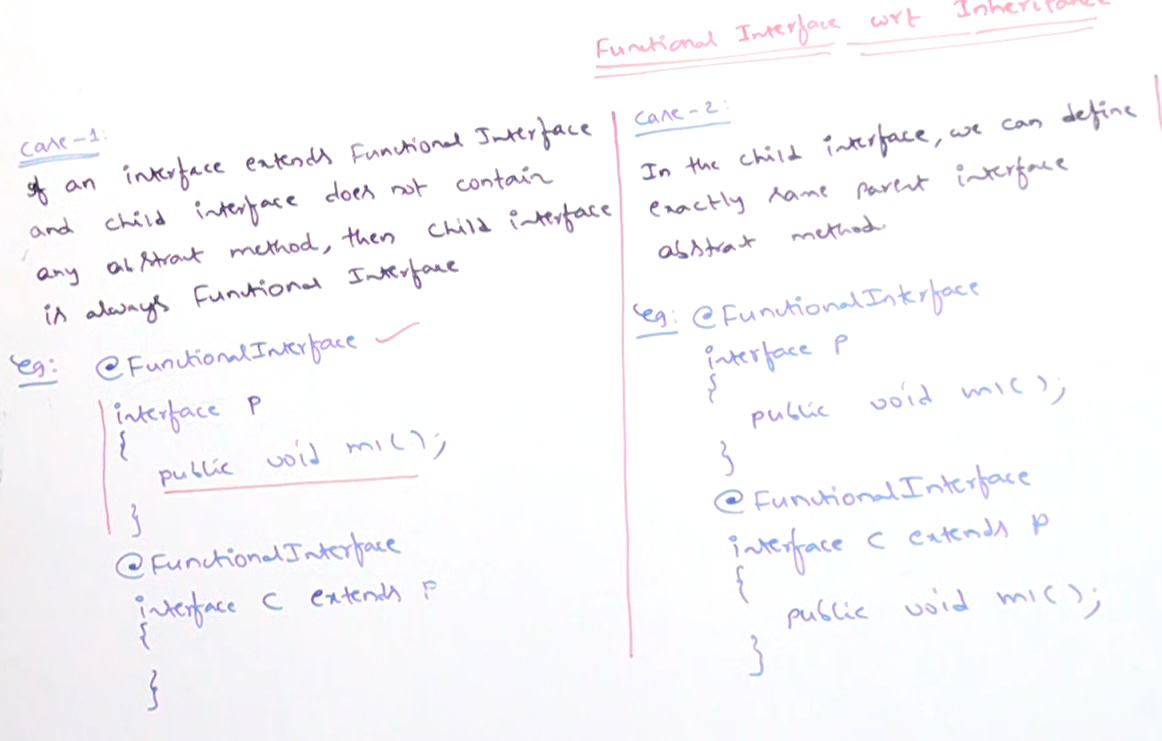 Functional Interface wrt Inheritance
Case-1:
If an interface extends Functional Interface
and child interface does not contain
any abstract method, then child interface
is always Functional Interface
eg: @FunctionalInterface
interface P
{
public void m1();
}
@FunctionalInterface
interface C extends P
{
}
Case-2:
In the child interface, we can define
exactly same parent interface
abstrat method.
eg: @FunctionalInterface
interface P
{
public void m1();
}
@FunctionalInterface
interface C extends P
{
public void m1();
}